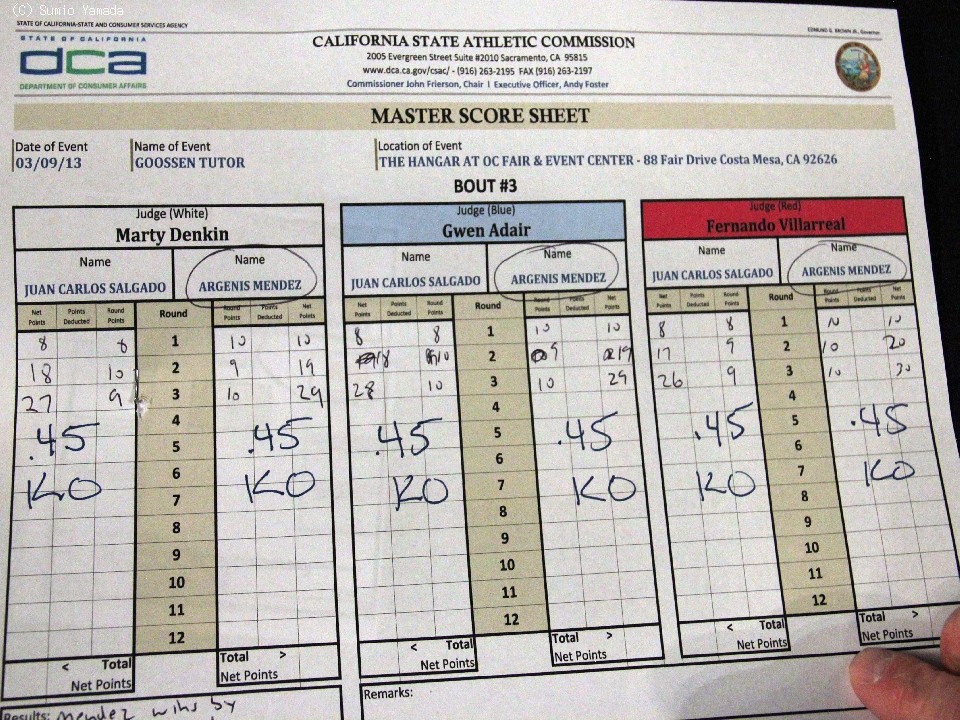 (C) Sumio Yamada
STATE OF CALIFORNIA-STATE AND CONSUMER SERVICES AGENCY
EDMUND G. BROWN JR., Governor
STATE OF CALIFORNIA
dca
DEPARTMENT OF CONSUMER AFFAIRS
CALIFORNIA STATE ATHLETIC COMMISSION
2005 Evergreen Street Suite #2010 Sacramento, CA 95815
www.dca.ca.gov/csac/ - (916) 263-2195 FAX (916) 263-2197
Commissioner John Frierson, Chair | Executive Officer, Andy Foster
MASTER SCORE SHEET
Date of Event Name of Event Location of Event
03/09/13 GOOSSEN TUTOR THE HANGAR AT OC FAIR & EVENT CENTER - 88 Fair Drive Costa Mesa, CA 92626
BOUT #3
Judge (White) Judge (Blue) Judge (Red)
Marty Denkin Gwen Adair Fernando Villarreal
Name Name Name Name Name Name
JUAN CARLOS SALGADO ARGENIS MENDEZ JUAN CARLOS SALGADO ARGENIS MENDEZ JUAN CARLOS SALGADO ARGENIS MENDEZ
Net Points Points Deducted Round Points Round Round Points Points Deducted Net Points Net Points Points Deducted Round Points Round Round Points Points Deducted Net Points Net Points Points Deducted Round Points Round Round Points Points Deducted Net Points
8 8 1 10 10 8 8 1 10 10 8 8 1 10 10
18 10 2 9 19 18 10 2 9 19 17 9 2 10 20
27 9 3 10 29 28 10 3 10 29 26 9 3 10 30
4 4 4
.45 5 .45 .45 5 .45 .45 5 .45
6 6 6
KO 7 KO KO 7 KO KO 7 KO
8 8 8
9 9 9
10 10 10
11 11 11
12 12 12
< Total Total > < Total Total > < Total Total >
Net Points Net Points Net Points Net Points Net Points Net Points
Remarks:
Results: Mendez wins by